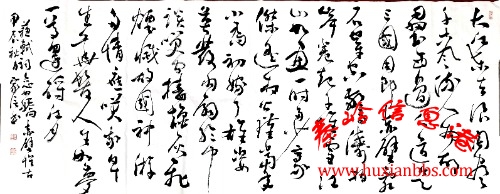 大江东去浪淘尽
千古风流人物故
垒西边人道是
三国周郎赤壁乱
石穿空惊涛拍
岸卷起千堆雪江
山如画一时多少豪
杰遥想公瑾当年
小乔初嫁了雄姿
英发羽扇纶巾
谈笑间樯橹灰飞
烟灭故国神游
多情应笑我早
生华发人生如梦
一尊还酹江月
苏轼词念奴娇赤壁怀古
信息
www.huxianbbs.com